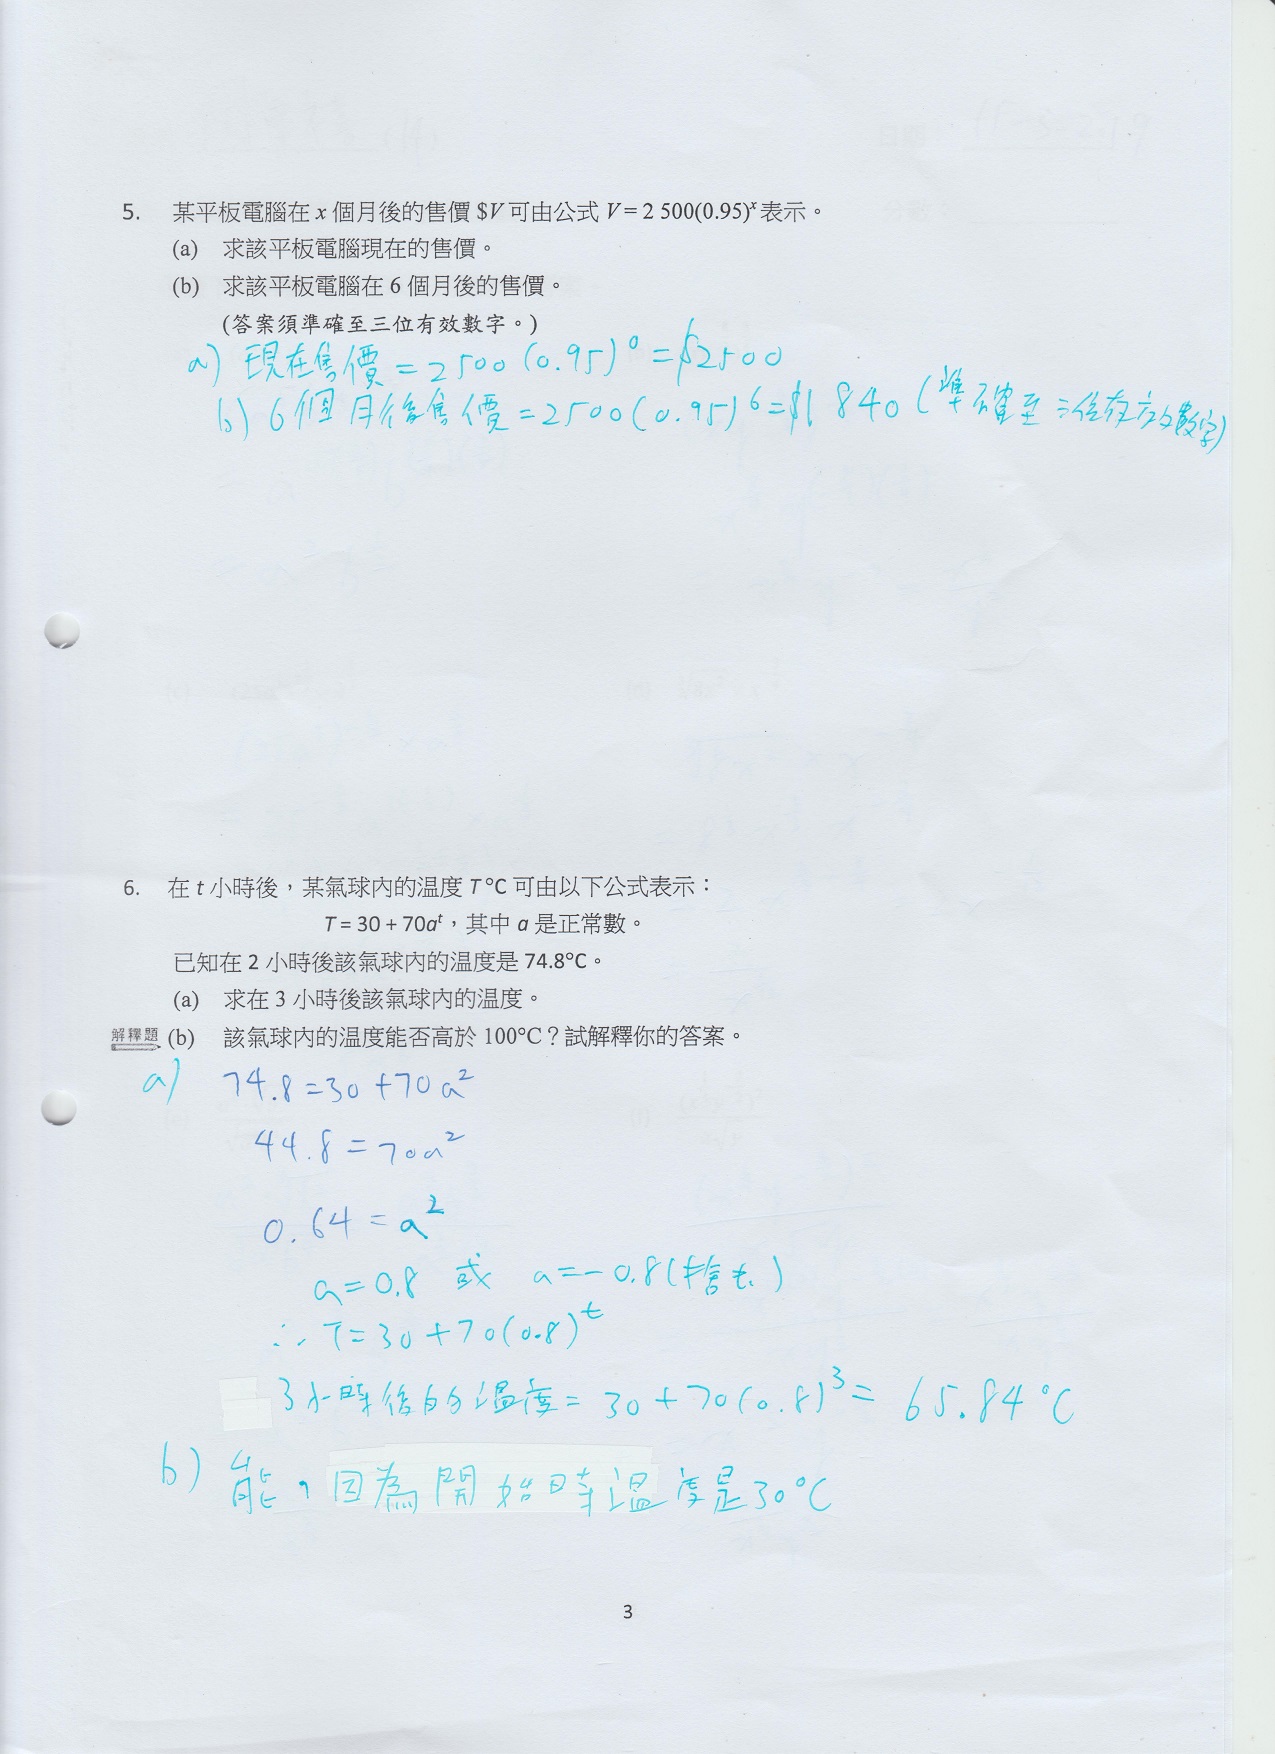 5. 某平板電腦在 x 個月後的售價 $V 可由公式 V = 2 500(0.95)ˣ 表示。
(a) 求該平板電腦現在的售價。
(b) 求該平板電腦在 6 個月後的售價。
(答案須準確至三位有效數字。)
a) 現在售價 = 2500(0.95)⁰ = $2500
b) 6個月後售價 = 2500(0.95)⁶ = $1840 (準確至三位有效數字)
6. 在 t 小時後，某氣球內的溫度 T °C 可由以下公式表示：
T = 30 + 70aᵗ，其中 a 是正常數。
已知在 2 小時後該氣球內的溫度是 74.8°C。
(a) 求在 3 小時後該氣球內的溫度。
解釋題 (b) 該氣球內的溫度能否高於 100°C？試解釋你的答案。
a) 74.8 = 30 + 70a²
44.8 = 70a²
0.64 = a²
a = 0.8 或 a = -0.8 (捨去)
∴ T = 30 + 70(0.8)ᵗ
3小時後的溫度 = 30 + 70(0.8)³ = 65.84°C
b) 能，因為開始時溫度是30°C
3